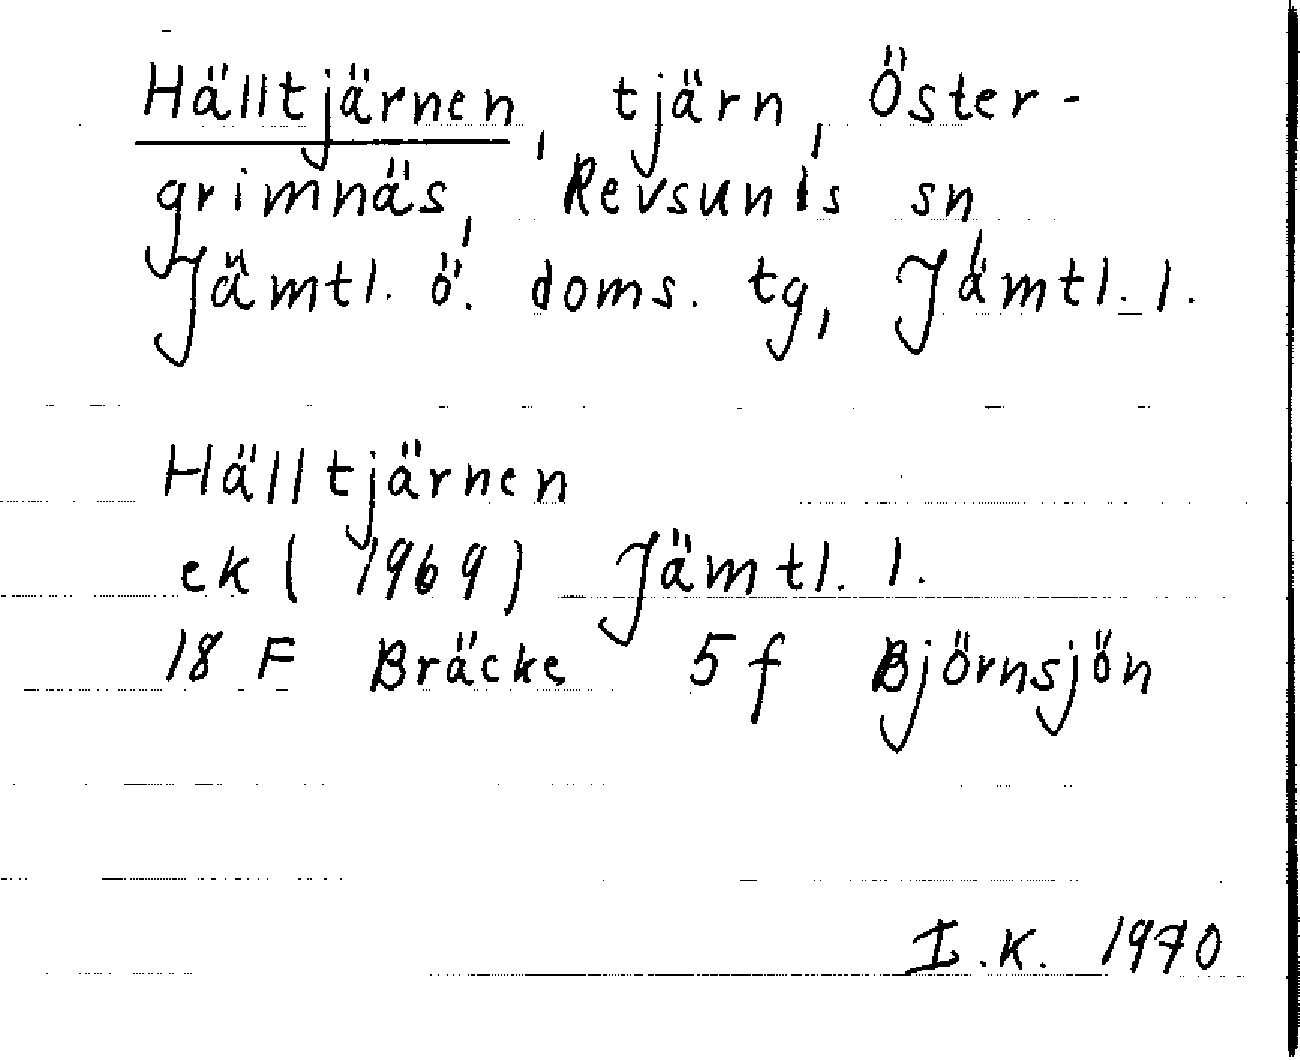 Hälltjärnen, tjärn, Öster-
grimnäs, Revsunds sn
Jämtl. ö. doms. tg, Jämtl. l.
Hälltjärnen
ek (1969) Jämtl. l.
18 F Bräcke 5 f Björnsjön
I.K. 1970